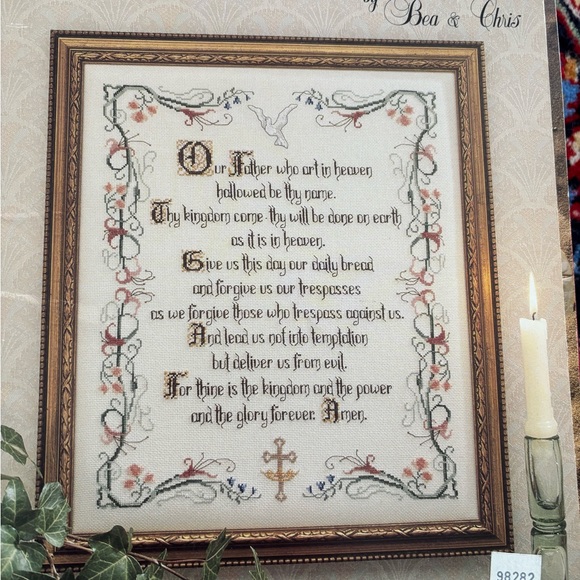 by
Bea & Chris
Our Father who art in heaven
hallowed be thy name.
Thy kingdom come thy will be done on earth
as it is in heaven.
Give us this day our daily bread
and forgive us our trespasses
as we forgive those who trespass against us.
And lead us not into temptation
but deliver us from evil.
For thine is the kingdom and the power
and the glory forever. Amen.
98282